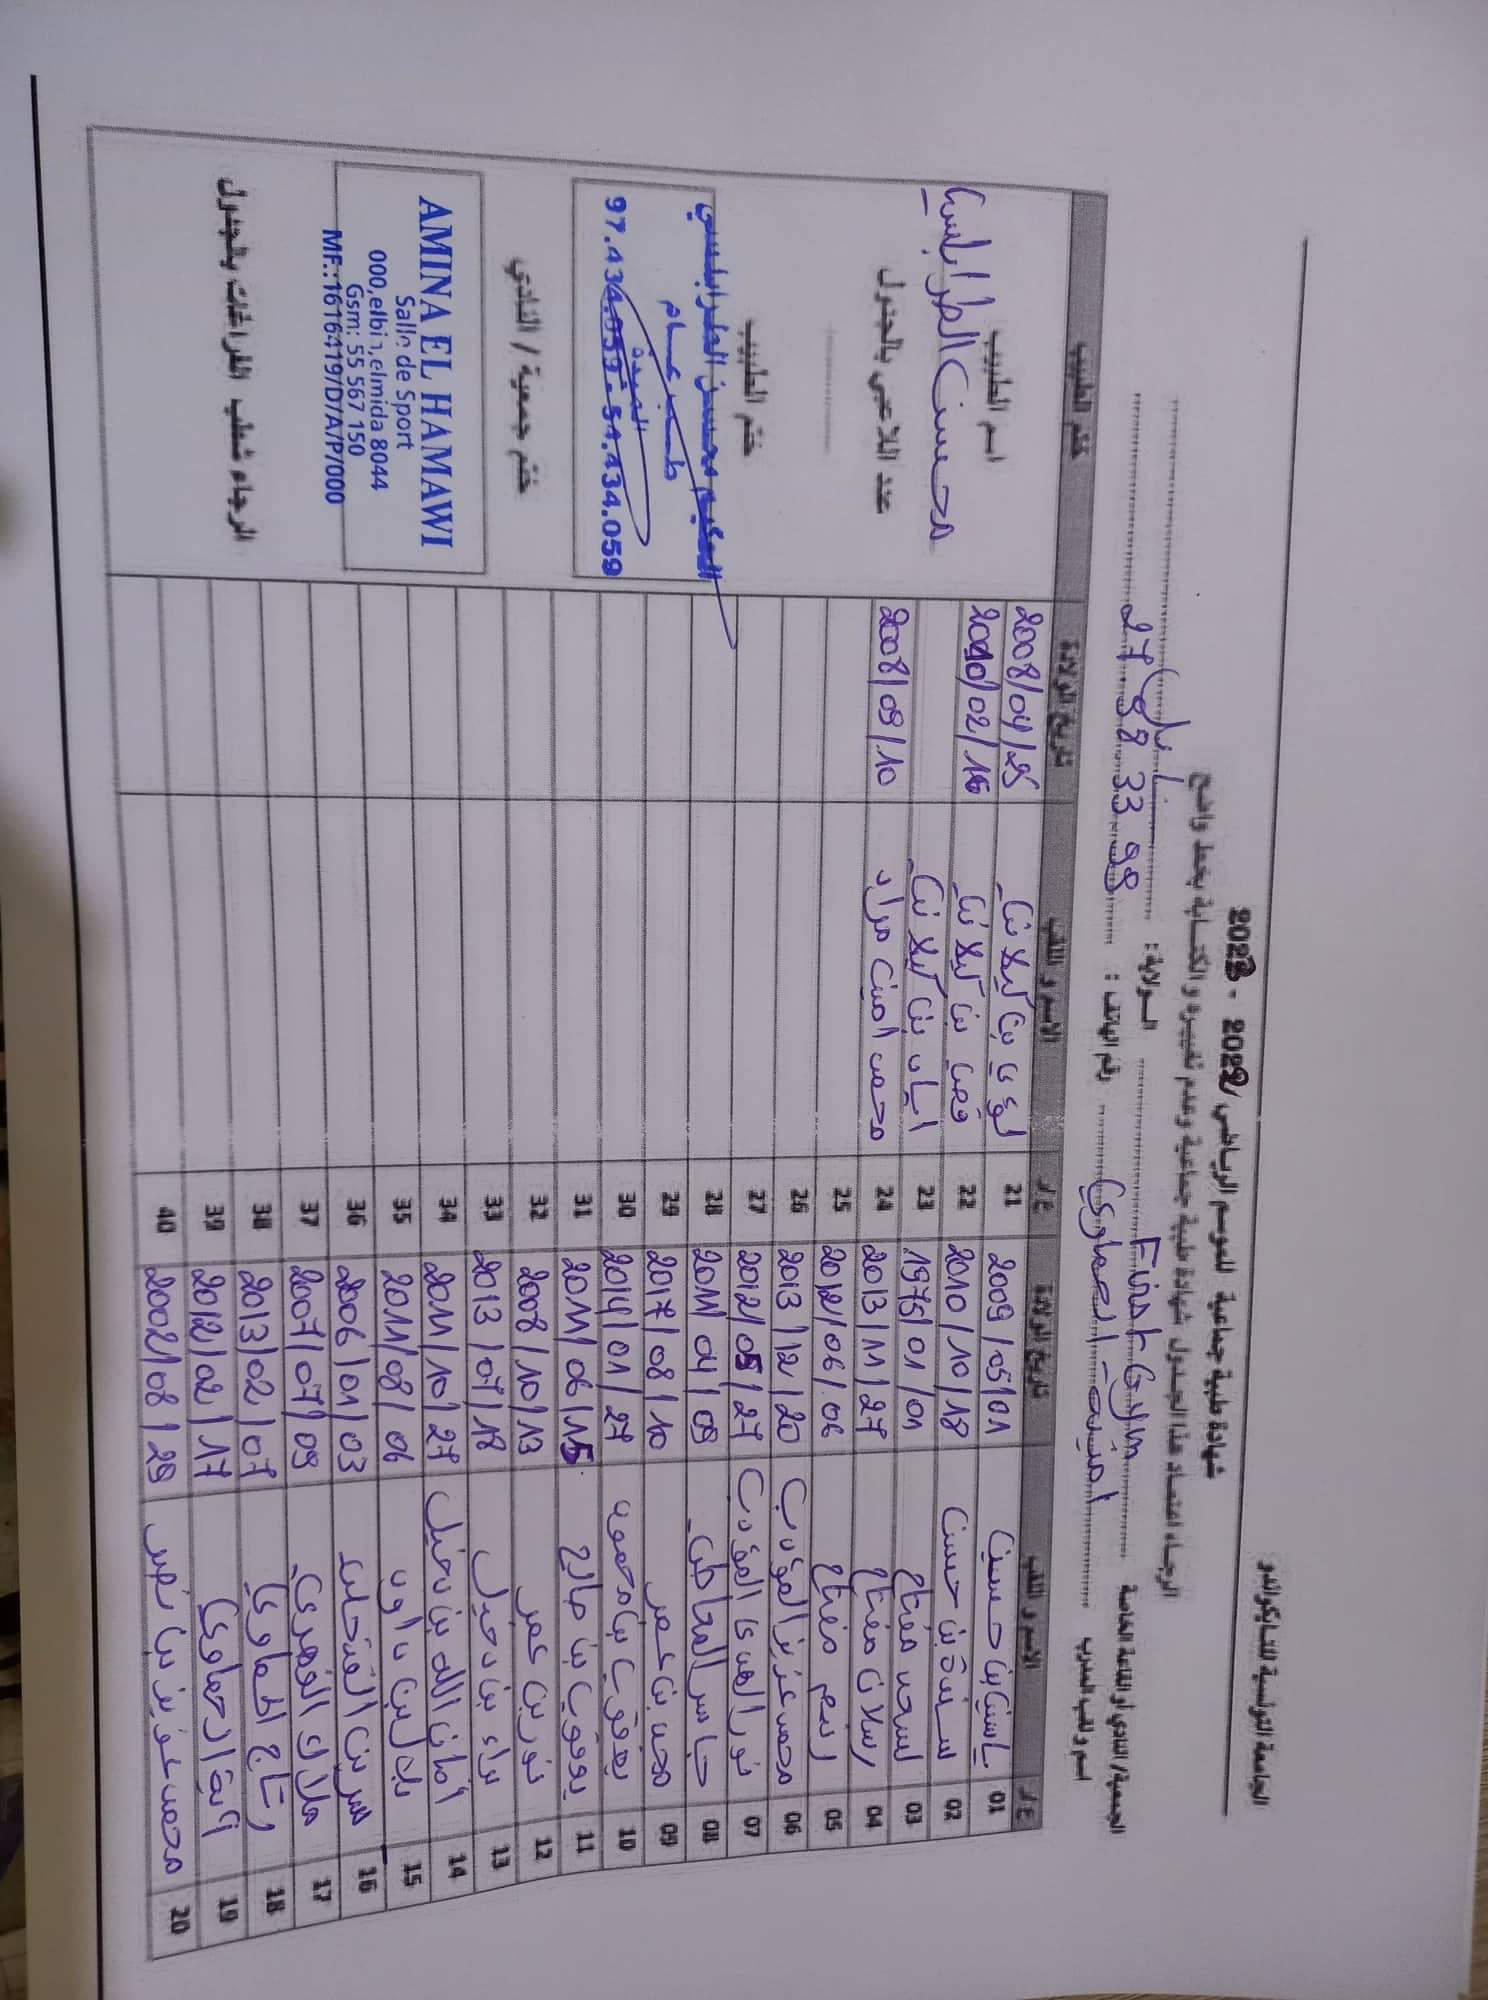 الجامعة التونسية للتايكواندو
شهادة طبية جماعية للموسم الرياضي 2022 - 2023
الرجاء اعتماد هذا الجدول شهادة طبية جماعية وعدم تغييره و الكتابة بخط واضح
الجمعية/ النادي أو القاعة الخاصة First Gym الولاية: نابل
اسم و لقب المدرب أمينة الحماوي رقم الهاتف: 27 98 33 98
ع/ر الاسم و اللقب تاريخ الولادة ع/ر الاسم و اللقب تاريخ الولادة ختم الطبيب
01 ياسين بن حسين 2009/05/01 21 لؤي بن كيلاني 2008/04/25
02 بن حسين 2010/10/18 22 بن كيلاني 02/16
03 مفتاح 1975/01/01 23 بن كيلاني
04 رسلان مفتاح 2013/11/27 24 محمد امين مراد 2008/09/10
05 مفتاح 2012/06/06 25
06 محمد عزيز المؤدب 2013/12/20 26
07 نور الهدى المؤدب 2012/05/27 27
08 2011/04/09 28
09 محمد بن عمر 2017/08/10 29
10 يعقوب بن محمود 2014/01/27 30
11 يعقوب بن صالح 2011/06/15 31
12 بن عمر 2008/10/13 32
13 براء بن دخيل 2013/07/18 33
14 أمان الله بن دخيل 2011/10/27 34
15 بن داود 2011/08/06 35
16 سيرين 2006/01/03 36
17 ملاك 2007/07/09 37
18 رتاج الحماوي 2013/02/07 38
19 آية الحماوي 2012/02/17 39
20 محمد عزيز بن نصر 2002/08/29 40
اسم الطبيب
محسن الطرابلسي
عدد اللاعبين بالجدول
ختم الطبيب
الحكيم محسن الطرابلسي
طبيب عام
الميدة
97.434.059 - 54.434.059
ختم جمعية / النادي
AMINA EL HAMAWI
Salle de Sport
elmida 8044
Gsm: 55 567 150
MF.:1616419/D/A/P/000
الرجاء شطب الفراغات بالجدول